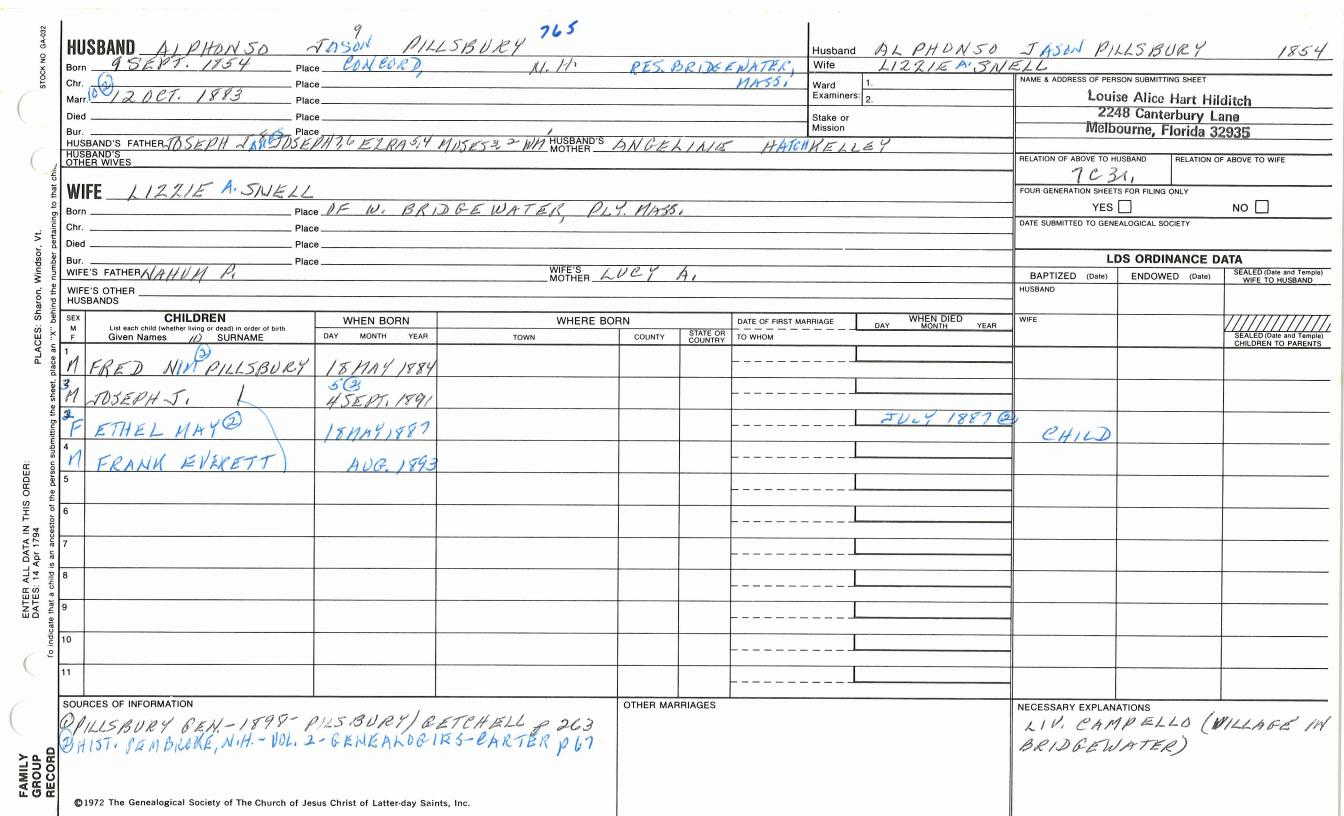 STOCK NO. GA-032
9
765
HUSBAND ALPHONSO JASON PILLSBURY
Born 9 SEPT. 1854 Place CONCORD, N.H. RES. BRIDGEWATER, MASS.
Chr. Place
Marr. 10 (2) 12 OCT. 1883 Place
Died Place
Bur. Place
HUSBAND'S FATHER JOSEPH JAMES JOSEPH7,6 EZRA5,4 MOSES3,2 WM HUSBAND'S MOTHER ANGELINE HATCH KELLEY
HUSBAND'S OTHER WIVES
Husband ALPHONSO JASON PILLSBURY 1854
Wife LIZZIE A. SNELL
Ward Examiners: 1. 2.
Stake or Mission
NAME & ADDRESS OF PERSON SUBMITTING SHEET
Louise Alice Hart Hilditch
2248 Canterbury Lane
Melbourne, Florida 32935
RELATION OF ABOVE TO HUSBAND RELATION OF ABOVE TO WIFE
7C3R,
FOUR GENERATION SHEETS FOR FILING ONLY
YES NO
DATE SUBMITTED TO GENEALOGICAL SOCIETY
WIFE LIZZIE A. SNELL
Born Place OF W. BRIDGEWATER, PLY. MASS.
Chr. Place
Died Place
Bur. Place
WIFE'S FATHER NAHUM P. WIFE'S MOTHER LUCY A.
WIFE'S OTHER HUSBANDS
LDS ORDINANCE DATA
BAPTIZED (Date) ENDOWED (Date) SEALED (Date and Temple) WIFE TO HUSBAND
HUSBAND
WIFE
SEALED (Date and Temple) CHILDREN TO PARENTS
SEX M F
CHILDREN
List each child (whether living or dead) in order of birth.
Given Names 10 SURNAME
WHEN BORN
DAY MONTH YEAR
WHERE BORN
TOWN COUNTY STATE OR COUNTRY
DATE OF FIRST MARRIAGE
TO WHOM
WHEN DIED
DAY MONTH YEAR
1 M FRED NIM (2) PILLSBURY 18 MAY 1884
3 M JOSEPH J. 5 (2) 4 SEPT. 1891
2 F ETHEL MAY (2) 18 MAY 1887 JULY 1887 (2) CHILD
4 M FRANK EVERETT AUG. 1893
5
6
7
8
9
10
11
SOURCES OF INFORMATION
(1) PILLSBURY GEN.-1898- PILSBURY/GETCHELL p 263
(2) HIST. PEMBROKE, N.H.- VOL. 2-GENEALOGIES-CARTER p 67
OTHER MARRIAGES
NECESSARY EXPLANATIONS
LIV. CAMPELLO (VILLAGE IN
BRIDGEWATER)
©1972 The Genealogical Society of The Church of Jesus Christ of Latter-day Saints, Inc.
PLACES: Sharon, Windsor, Vt.
ENTER ALL DATA IN THIS ORDER:
DATES: 14 Apr 1794
To indicate that a child is an ancestor of the person submitting the sheet, place an "X" behind the number pertaining to that chi
FAMILY
GROUP
RECORD